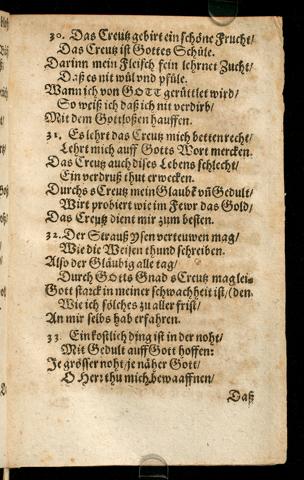 30. Das Creutz gebirt ein schöne Frucht/
Das Creutz ist Gottes Schüle.
Darinn mein Fleisch fein lehrnet Zucht/
Daß es nit wül vnd pfüle.
Wann ich von GOTT gerüttlet wird/
So weiß ich daß ich nit verdirb/
Mit dem Gottloßen hauffen.
31. Es lehrt das Creutz mich betten recht/
Lehrt mich auff Gotts Wort mercken.
Das Creutz auch dises Lebens schlecht/
Ein verdruß thut erwecken.
Durchs s Creutz mein Glaubẽ vñ Gedult/
Wirt probiert wie im Fewr das Gold/
Das Creutz dient mir zum besten.
32. Der Strauß ysen verteuwen mag/
Wie die Weisen thund schreiben.
Also der Gläubig alle tag/
Durch GOtts Gnad s Creutz mag lei-
Gott starck in meiner schwachheit ist/ (den.
Wie ich sölches zu aller frist/
An mir selbs hab erfahren.
33. Ein kostlich ding ist in der noht/
Mit Gedult auff Gott hoffen:
Je grösser noht/ je näher Gott/
O Herr thu mich bewaaffnen/
Daß